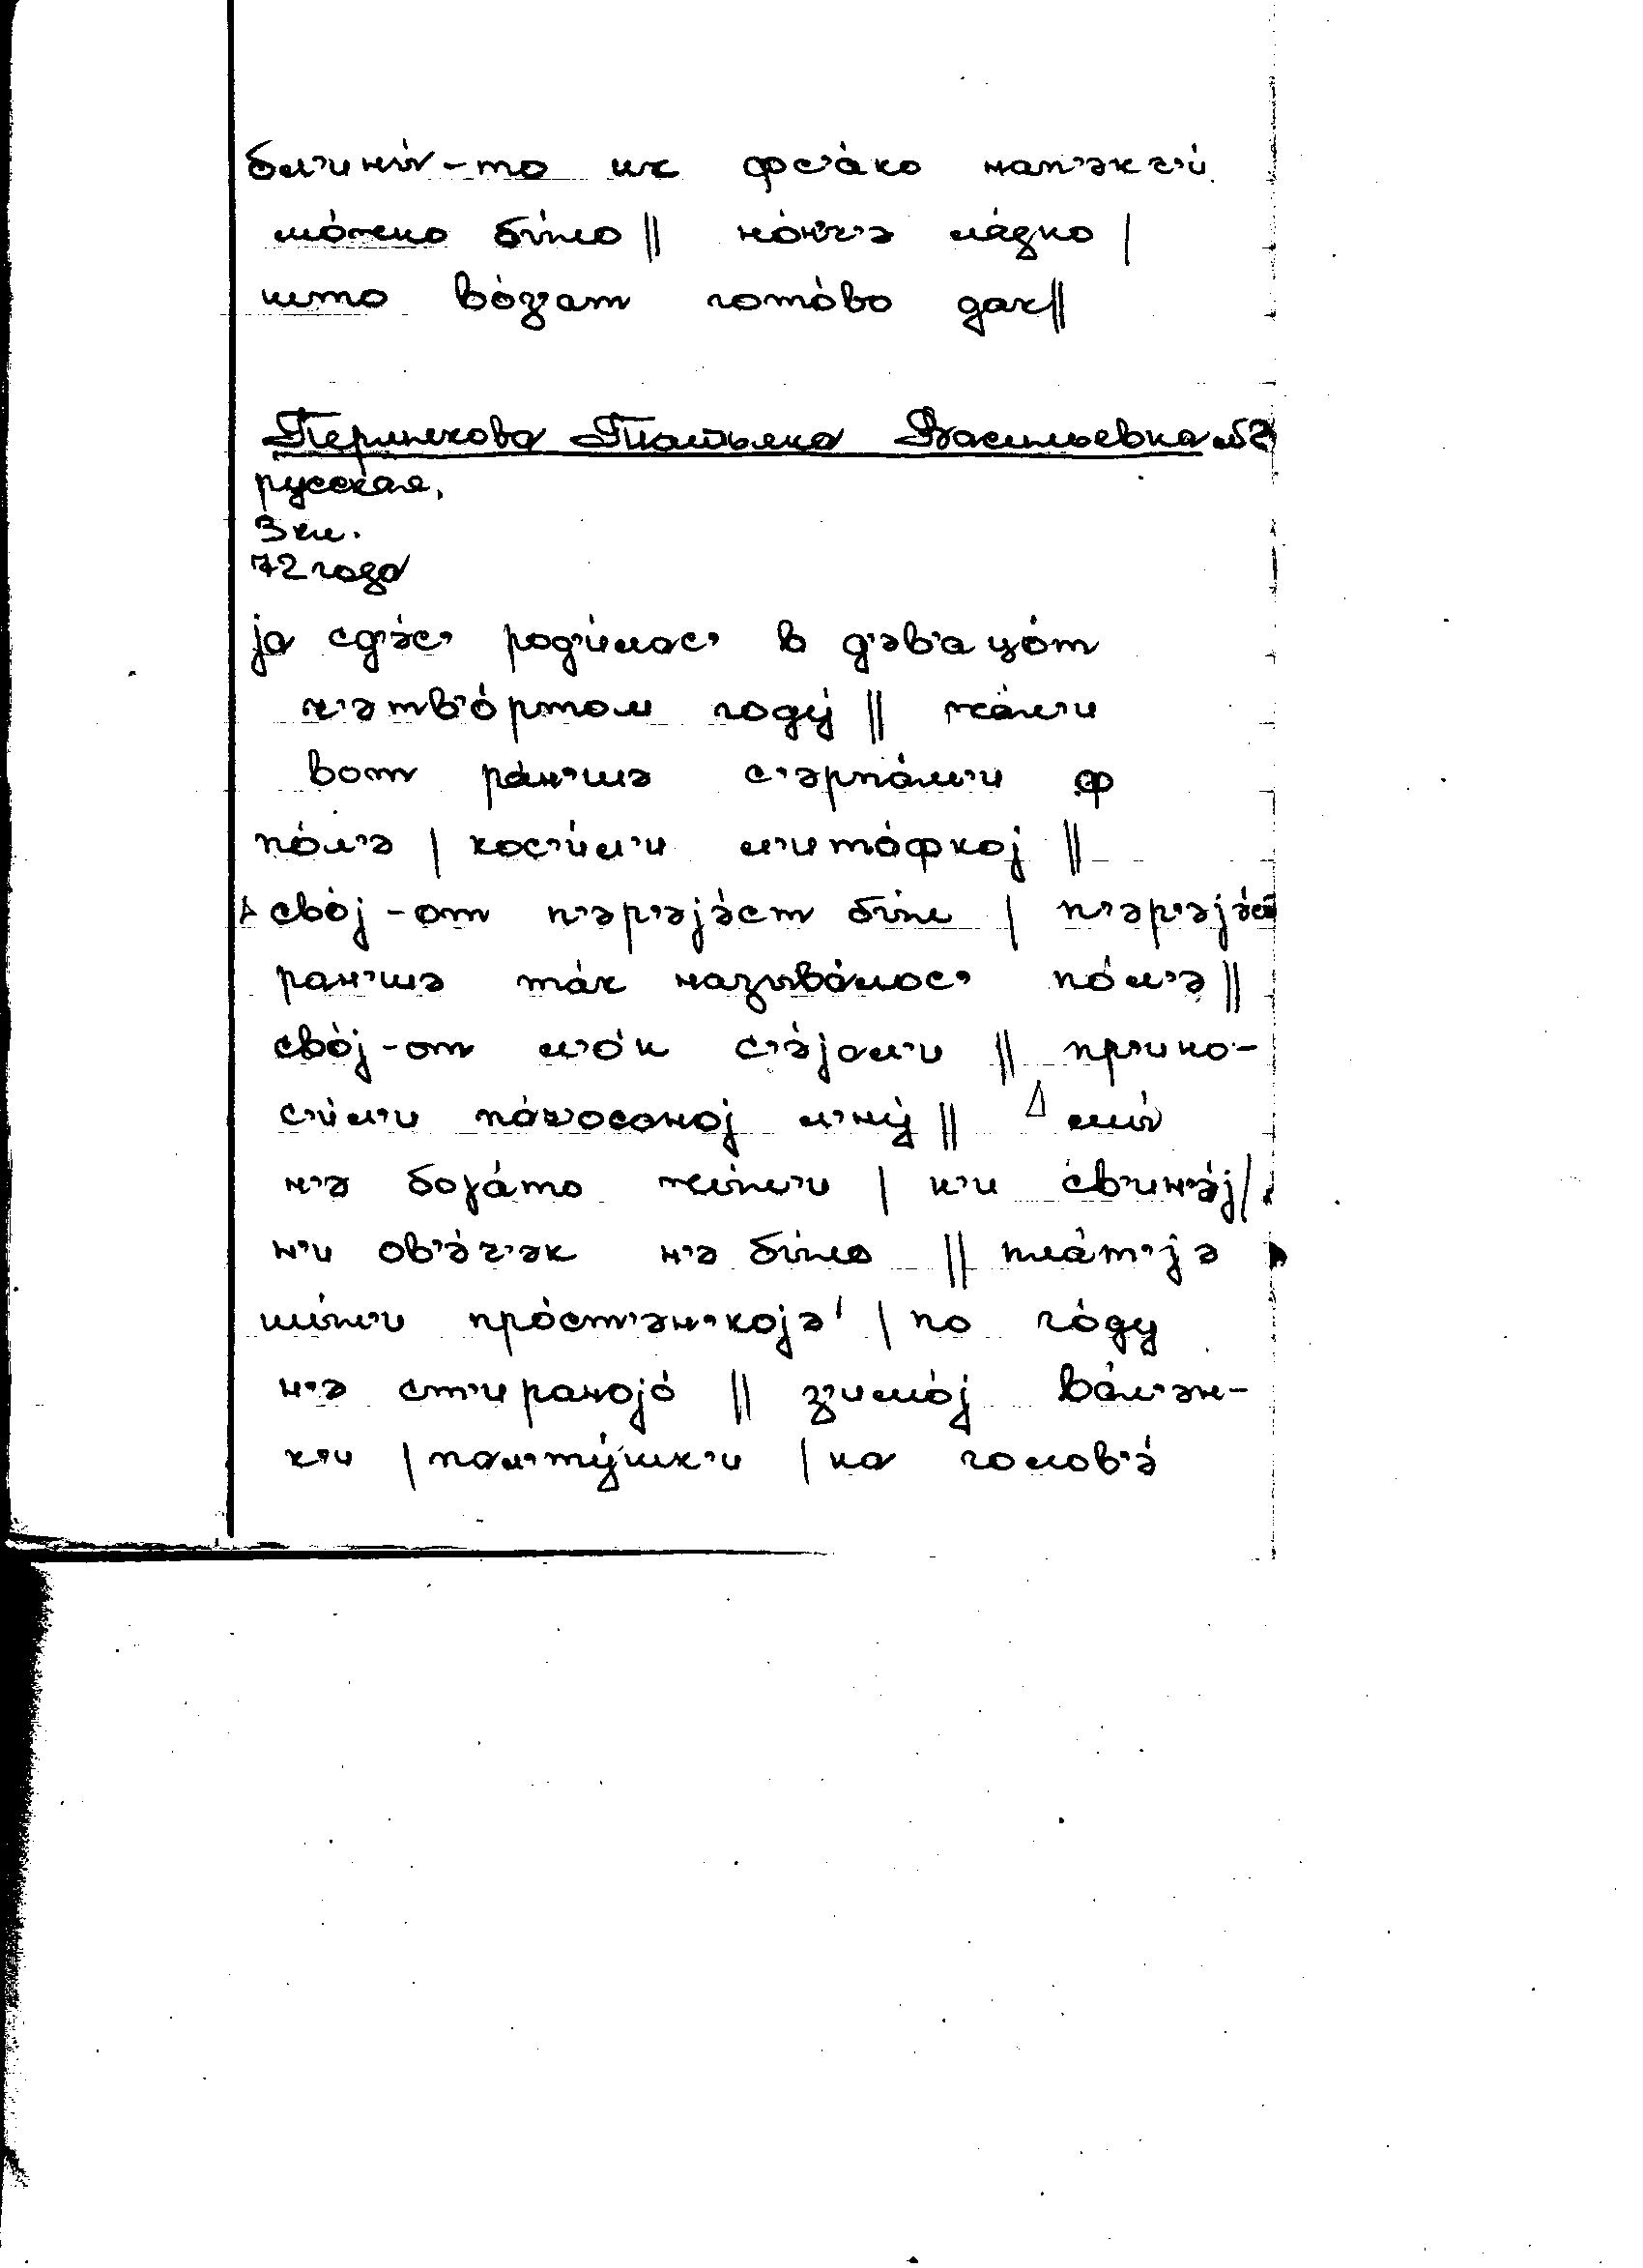 бл'ины́-то их фс'а́ко нап'экч'и́
мо́жно бы́ло || но́н'ч'э ла́дно |
што во́з'ат гото́во дак ||
Першкова Татьяна Васильевна
русская,
3 кл.
72 года
ја сд'э́с' род'и́лас' в д'эв'ацо́т
ч'этв'о́ртом году́ || жа́л'и
вот ра́н'шэ с'эрпа́м'и ф
по́л'э | кос'и́л'и л'ито́фкој ||
сво́ј-от п'эр'эjэ́ст бы́л | п'эр'эjэ́ст
ран'шэ та́к называ́лос' по́л'э ||
сво́ј-от л'о́н с'э́јал'и || пр'ино-
с'и́л'и па́чосоној л'ну́ || мы́
н'э бога́то жы́л'и | н'и св'ин'э́ј |
н'и ов'э́ч'эк н'э бы́ло || пла́т'јэ
шы́л'и про́ст'эн'којэ | по го́ду
н'э ст'ираноjо́ || з'имо́ј ва́л'эн-
к'и | пал'ту́шк'и | на голов'э́